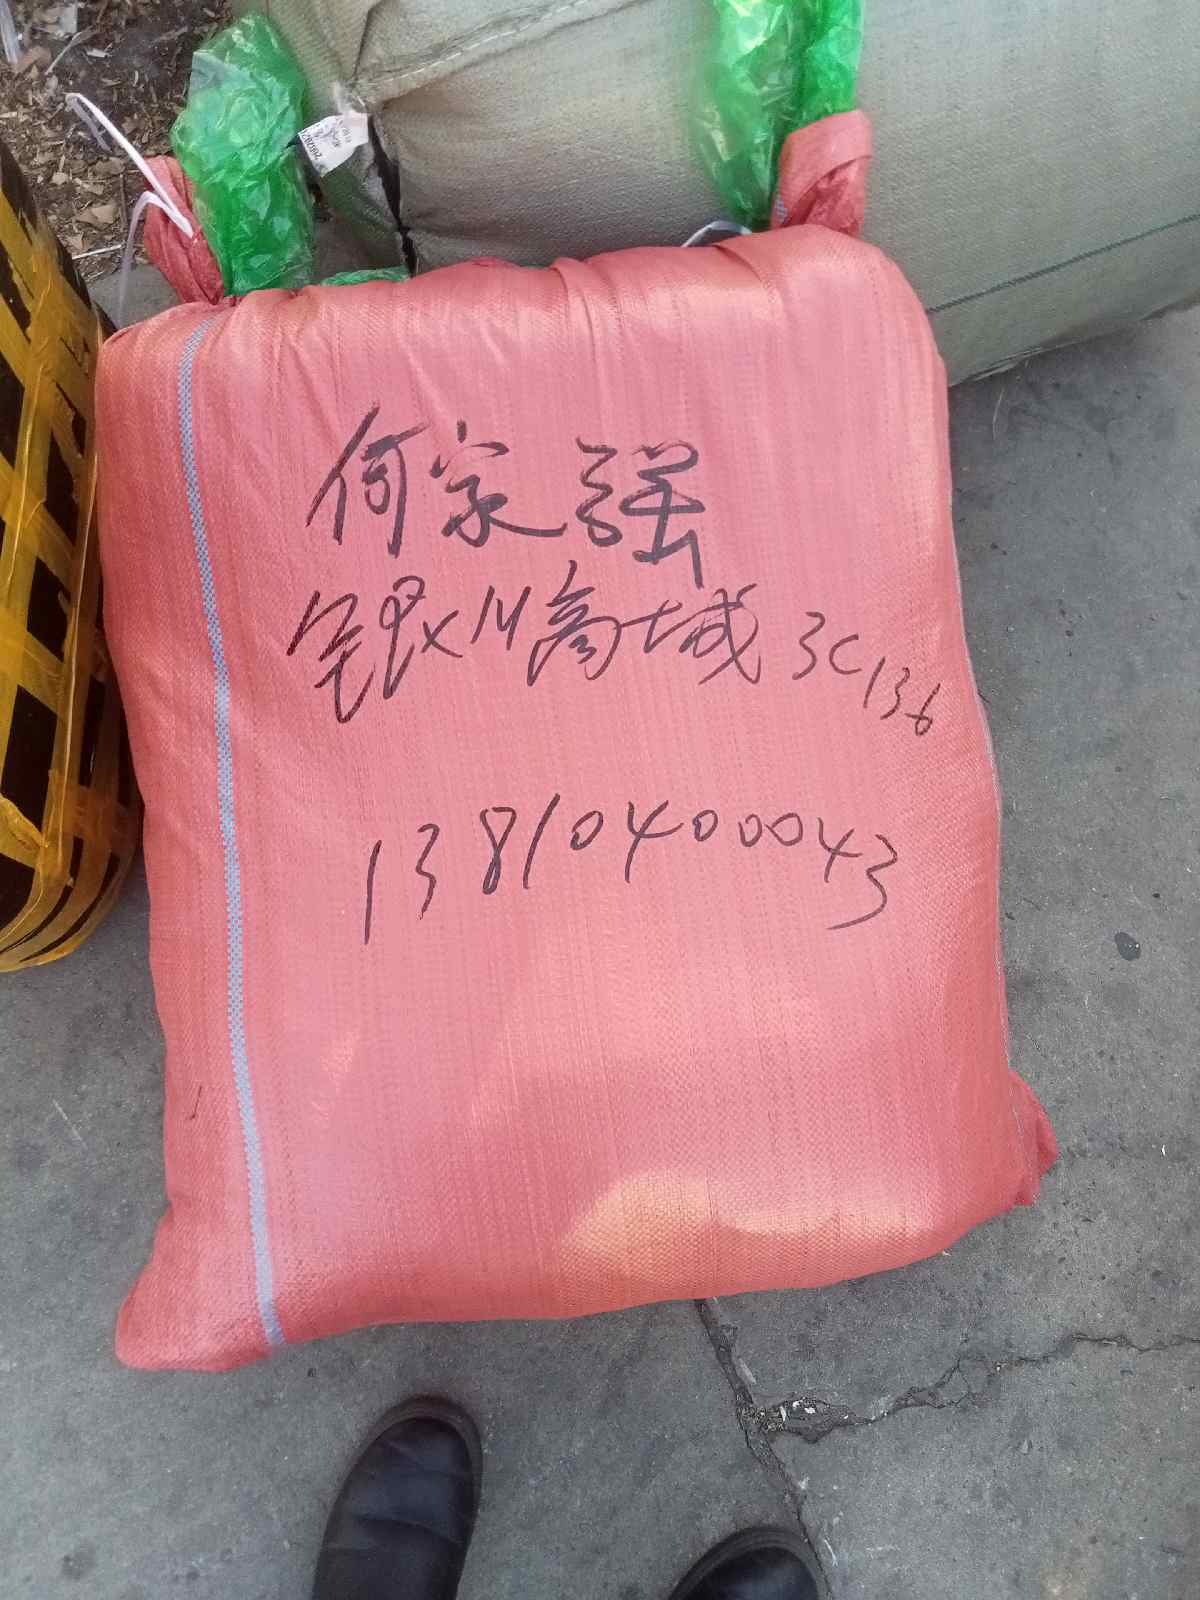 何家强
银川商城 3C136
13810400043